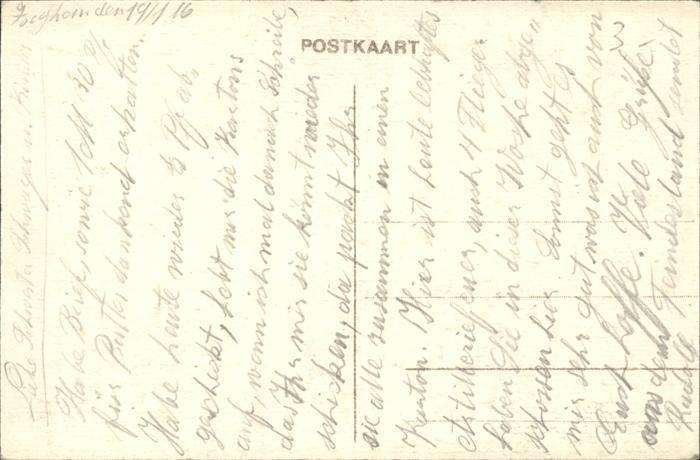 den 19/1 16
POSTKAART
Liebe Schwester Schwager u. Kinder
Habe Brief, sowie 1 Mk 30
für Butter dankend erhalten.
Habe heute wieder 5 Pf ab¬
geschickt, hebt mir die Kartons
auf, wenn ich mal darnach schreibe,
das Ihr mir sie könnt wieder
schicken, da packt Ihr
sie alle zusammen in einen
Karton. Hier ist heute lebhaftes
Artilleriefeuer, auch 4 Flieger
haben Sie in dieser Woche abge¬
schossen hier. Sonst geht es
mir sehr gut was ich auch von
Euch hoffe. Viele Grüße
aus dem Feindesland sendet